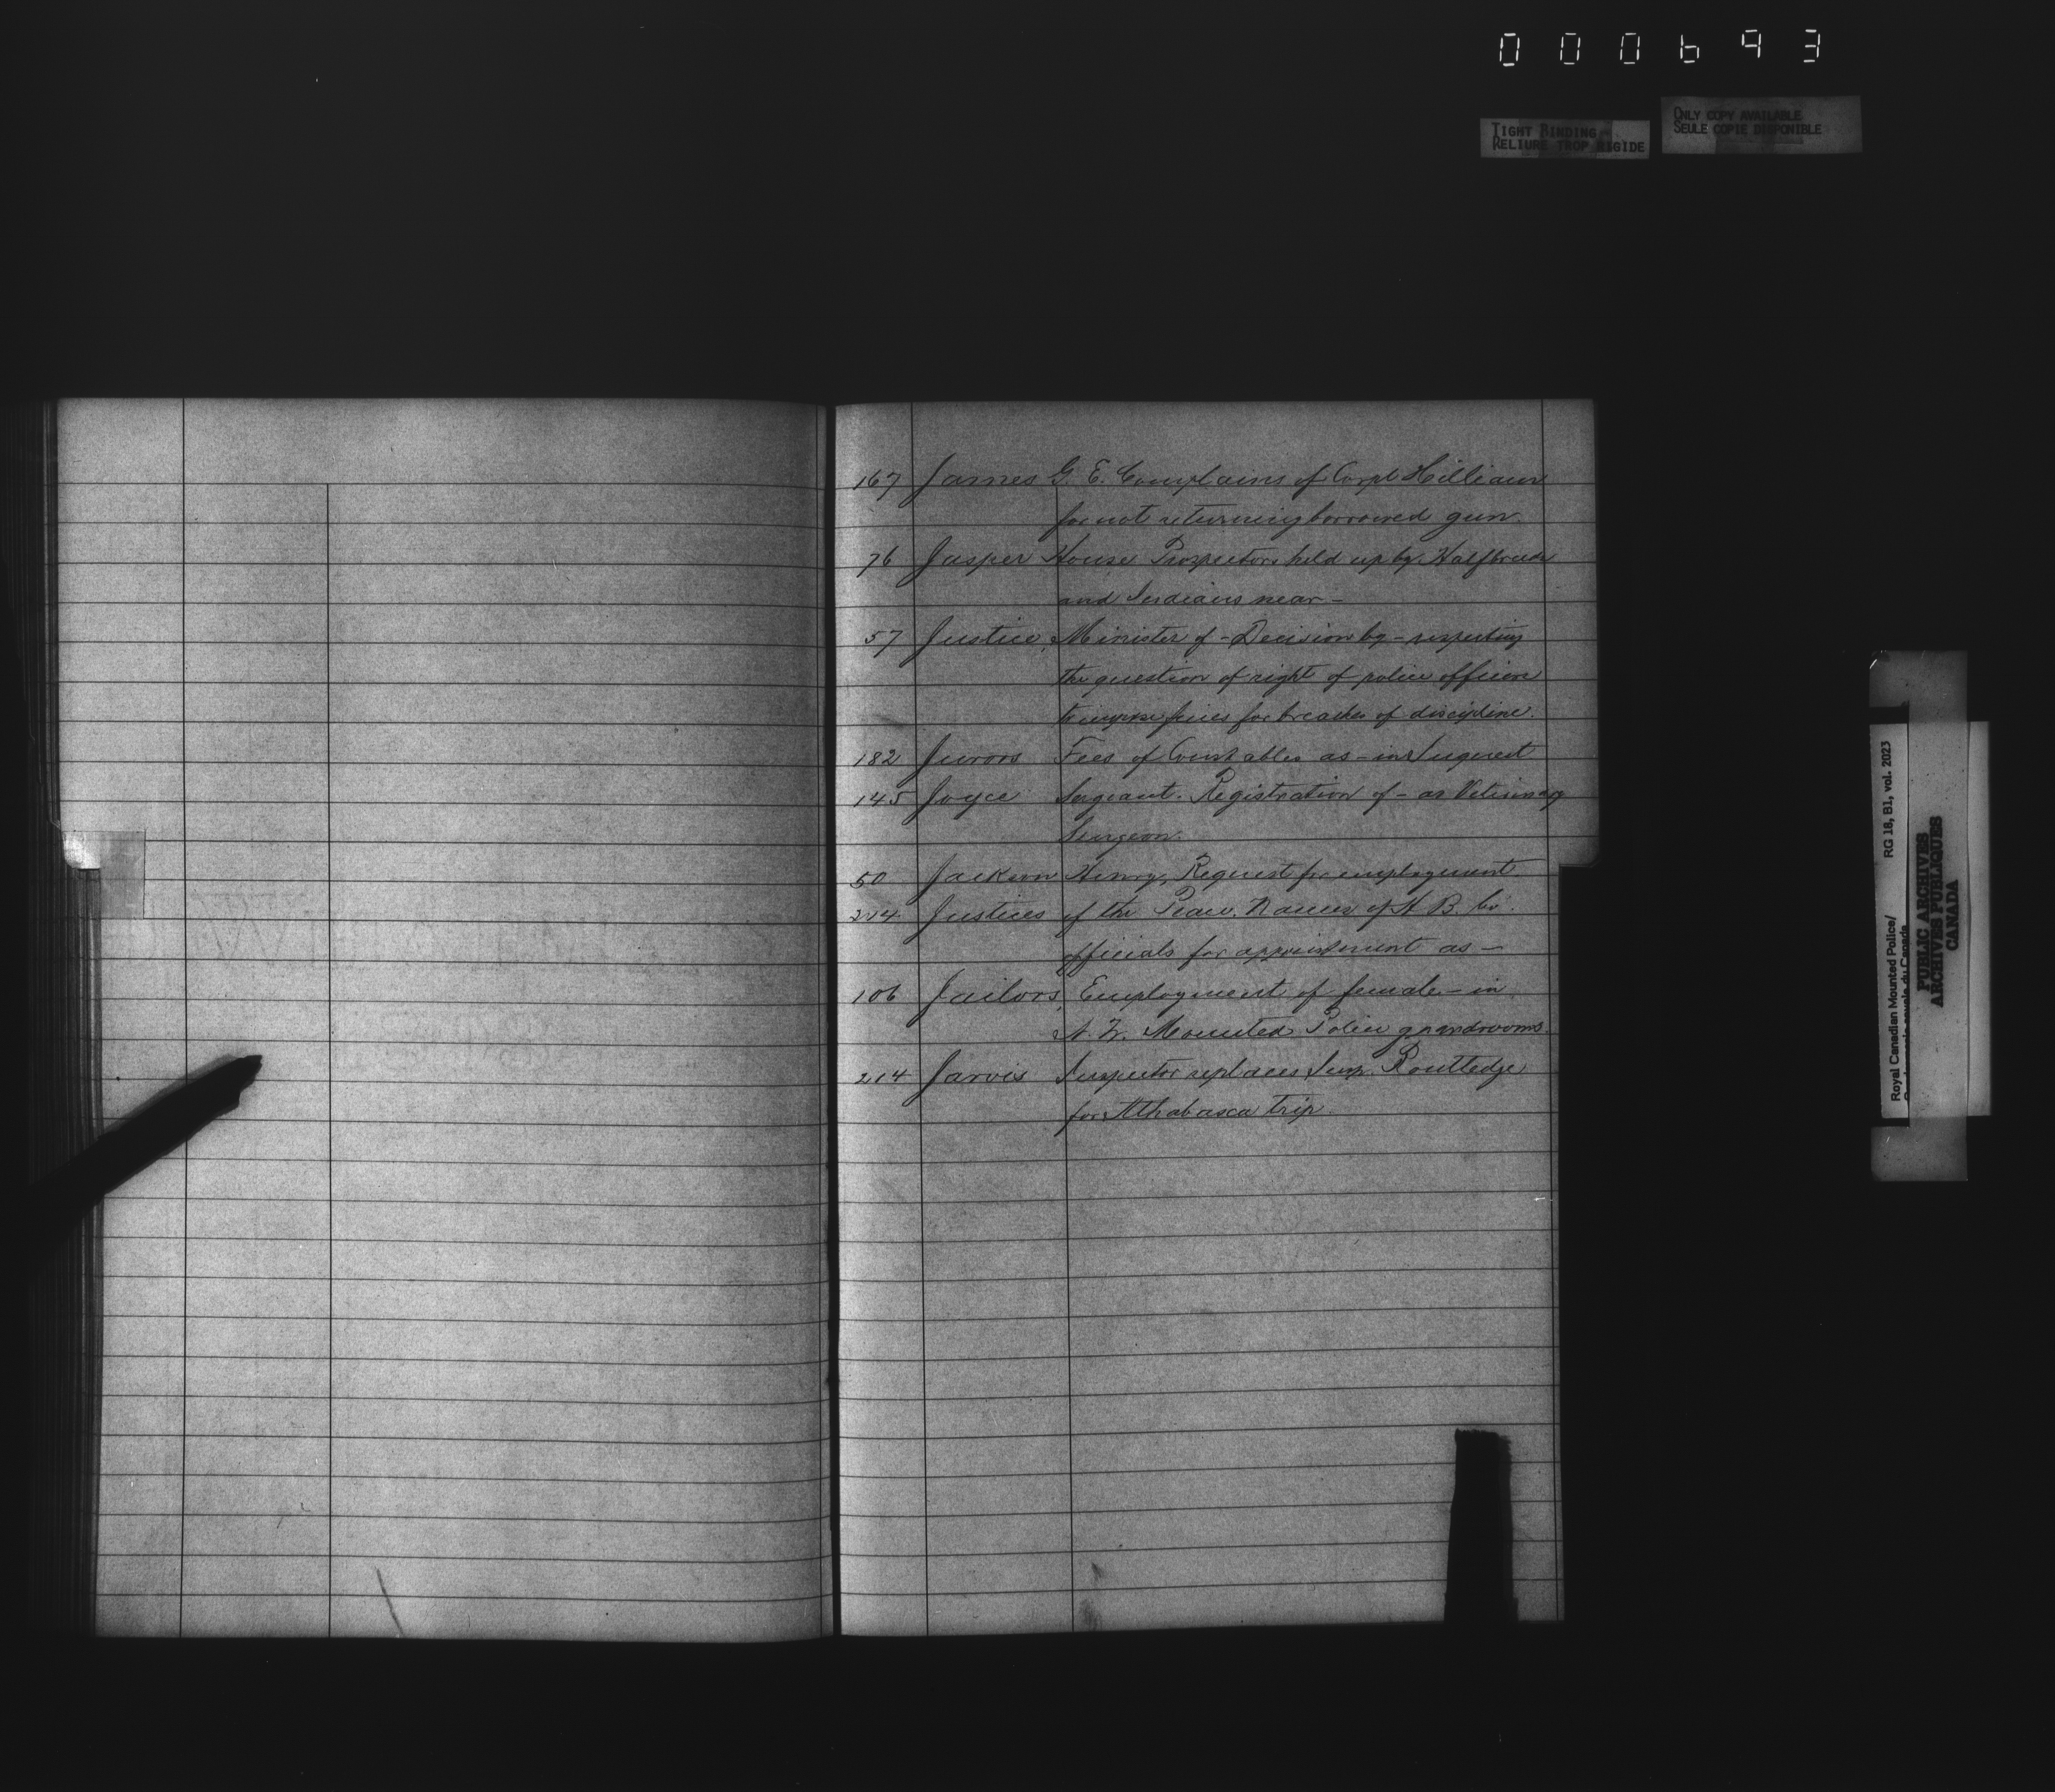 000693
TIGHT BINDING
RELIURE TROP RIGIDE
ONLY COPY AVAILABLE
SEULE COPIE DISPONIBLE
167 James G. E. Complains of Corpl Hilliam
for not returning borrowed gun.
76 Jasper House Prospectors held up by Halfbreeds
and Indians near -
57 Justice, Minister of - Decision by - respecting
the question of right of police officers
to impose fines for breaches of discipline.
182 Jurors Fees of Constables as - in Inquest
145 Joyce Sergeant. Registration of - as Veterinary
Surgeon.
50 Jackson Henry, Request for employment
214 Justices of the Peace. Names of H. B. Co.
officials for appointment as -
106 Jailors, Employment of female - in
N. W. Mounted Police guardrooms.
214 Jarvis Inspector replaces Insp. Routledge
for Athabasca trip.
Royal Canadian Mounted Police/ RG 18, B1, vol. 2023
PUBLIC ARCHIVES
ARCHIVES PUBLIQUES
CANADA